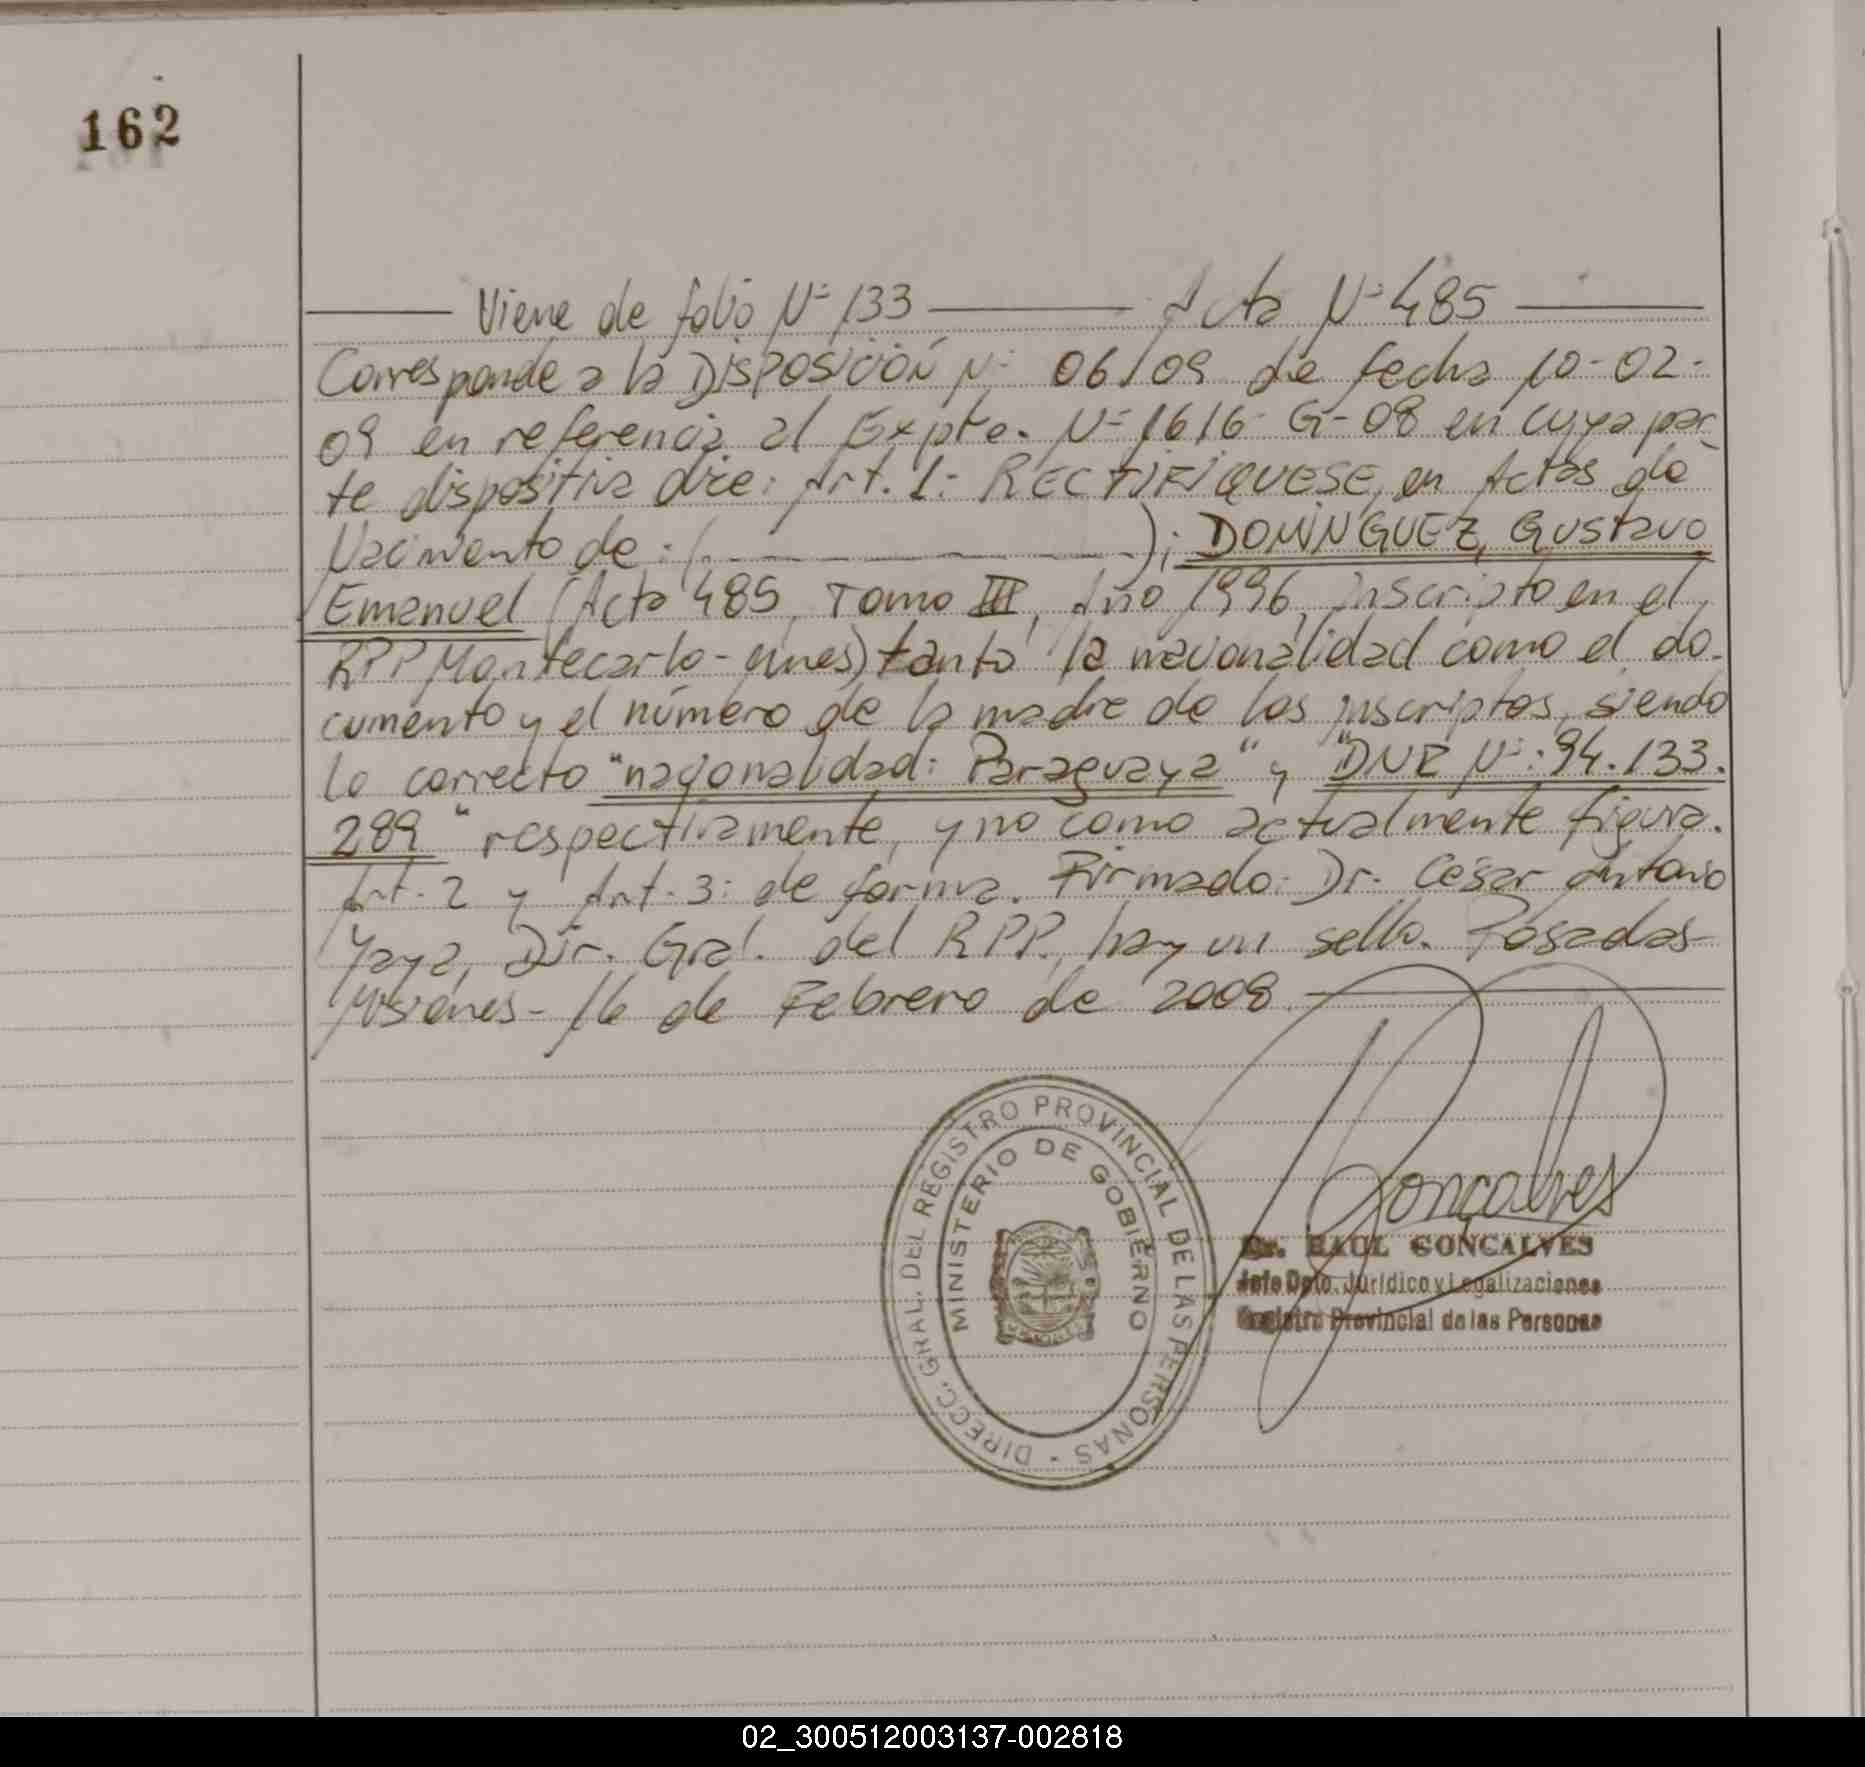 162
Viene de folio Nº 133 Acta Nº 485
Corresponde a la DISPOSICIÓN Nº 06/09 de fecha 10-02-
09 en referencia al Expte. Nº 1616-G-08 en cuya par-
te dispositiva dice: Art. 1: RECTIFIQUESE, en Actas de
Nacimiento de: ( ); DOMINGUEZ, Gustavo
Emanuel (Acta 485, Tomo III, Año 1996, inscripto en el
RPP Montecarlo - Mnes) tanto la nacionalidad como el do-
cumento y el número de la madre de los inscriptos, siendo
lo correcto "nacionalidad: Paraguaya" y "DNR Nº: 94.133.
289" respectivamente, y no como actualmente figura.
Art. 2 y Art. 3: de forma. Firmado: Dr. César Antonio
Yaya, Dir. Gral. del RPP., hay un sello. Posadas-
Misiones- 16 de Febrero de 2009
DIRECC. GRAL. DEL REGISTRO PROVINCIAL DE LAS PERSONAS
MINISTERIO DE GOBIERNO
Gonçalves
Dr. RAUL GONÇALVES
Jefe Dpto. Jurídico y Legalizaciones
Registro Provincial de las Personas
02_300512003137-002818